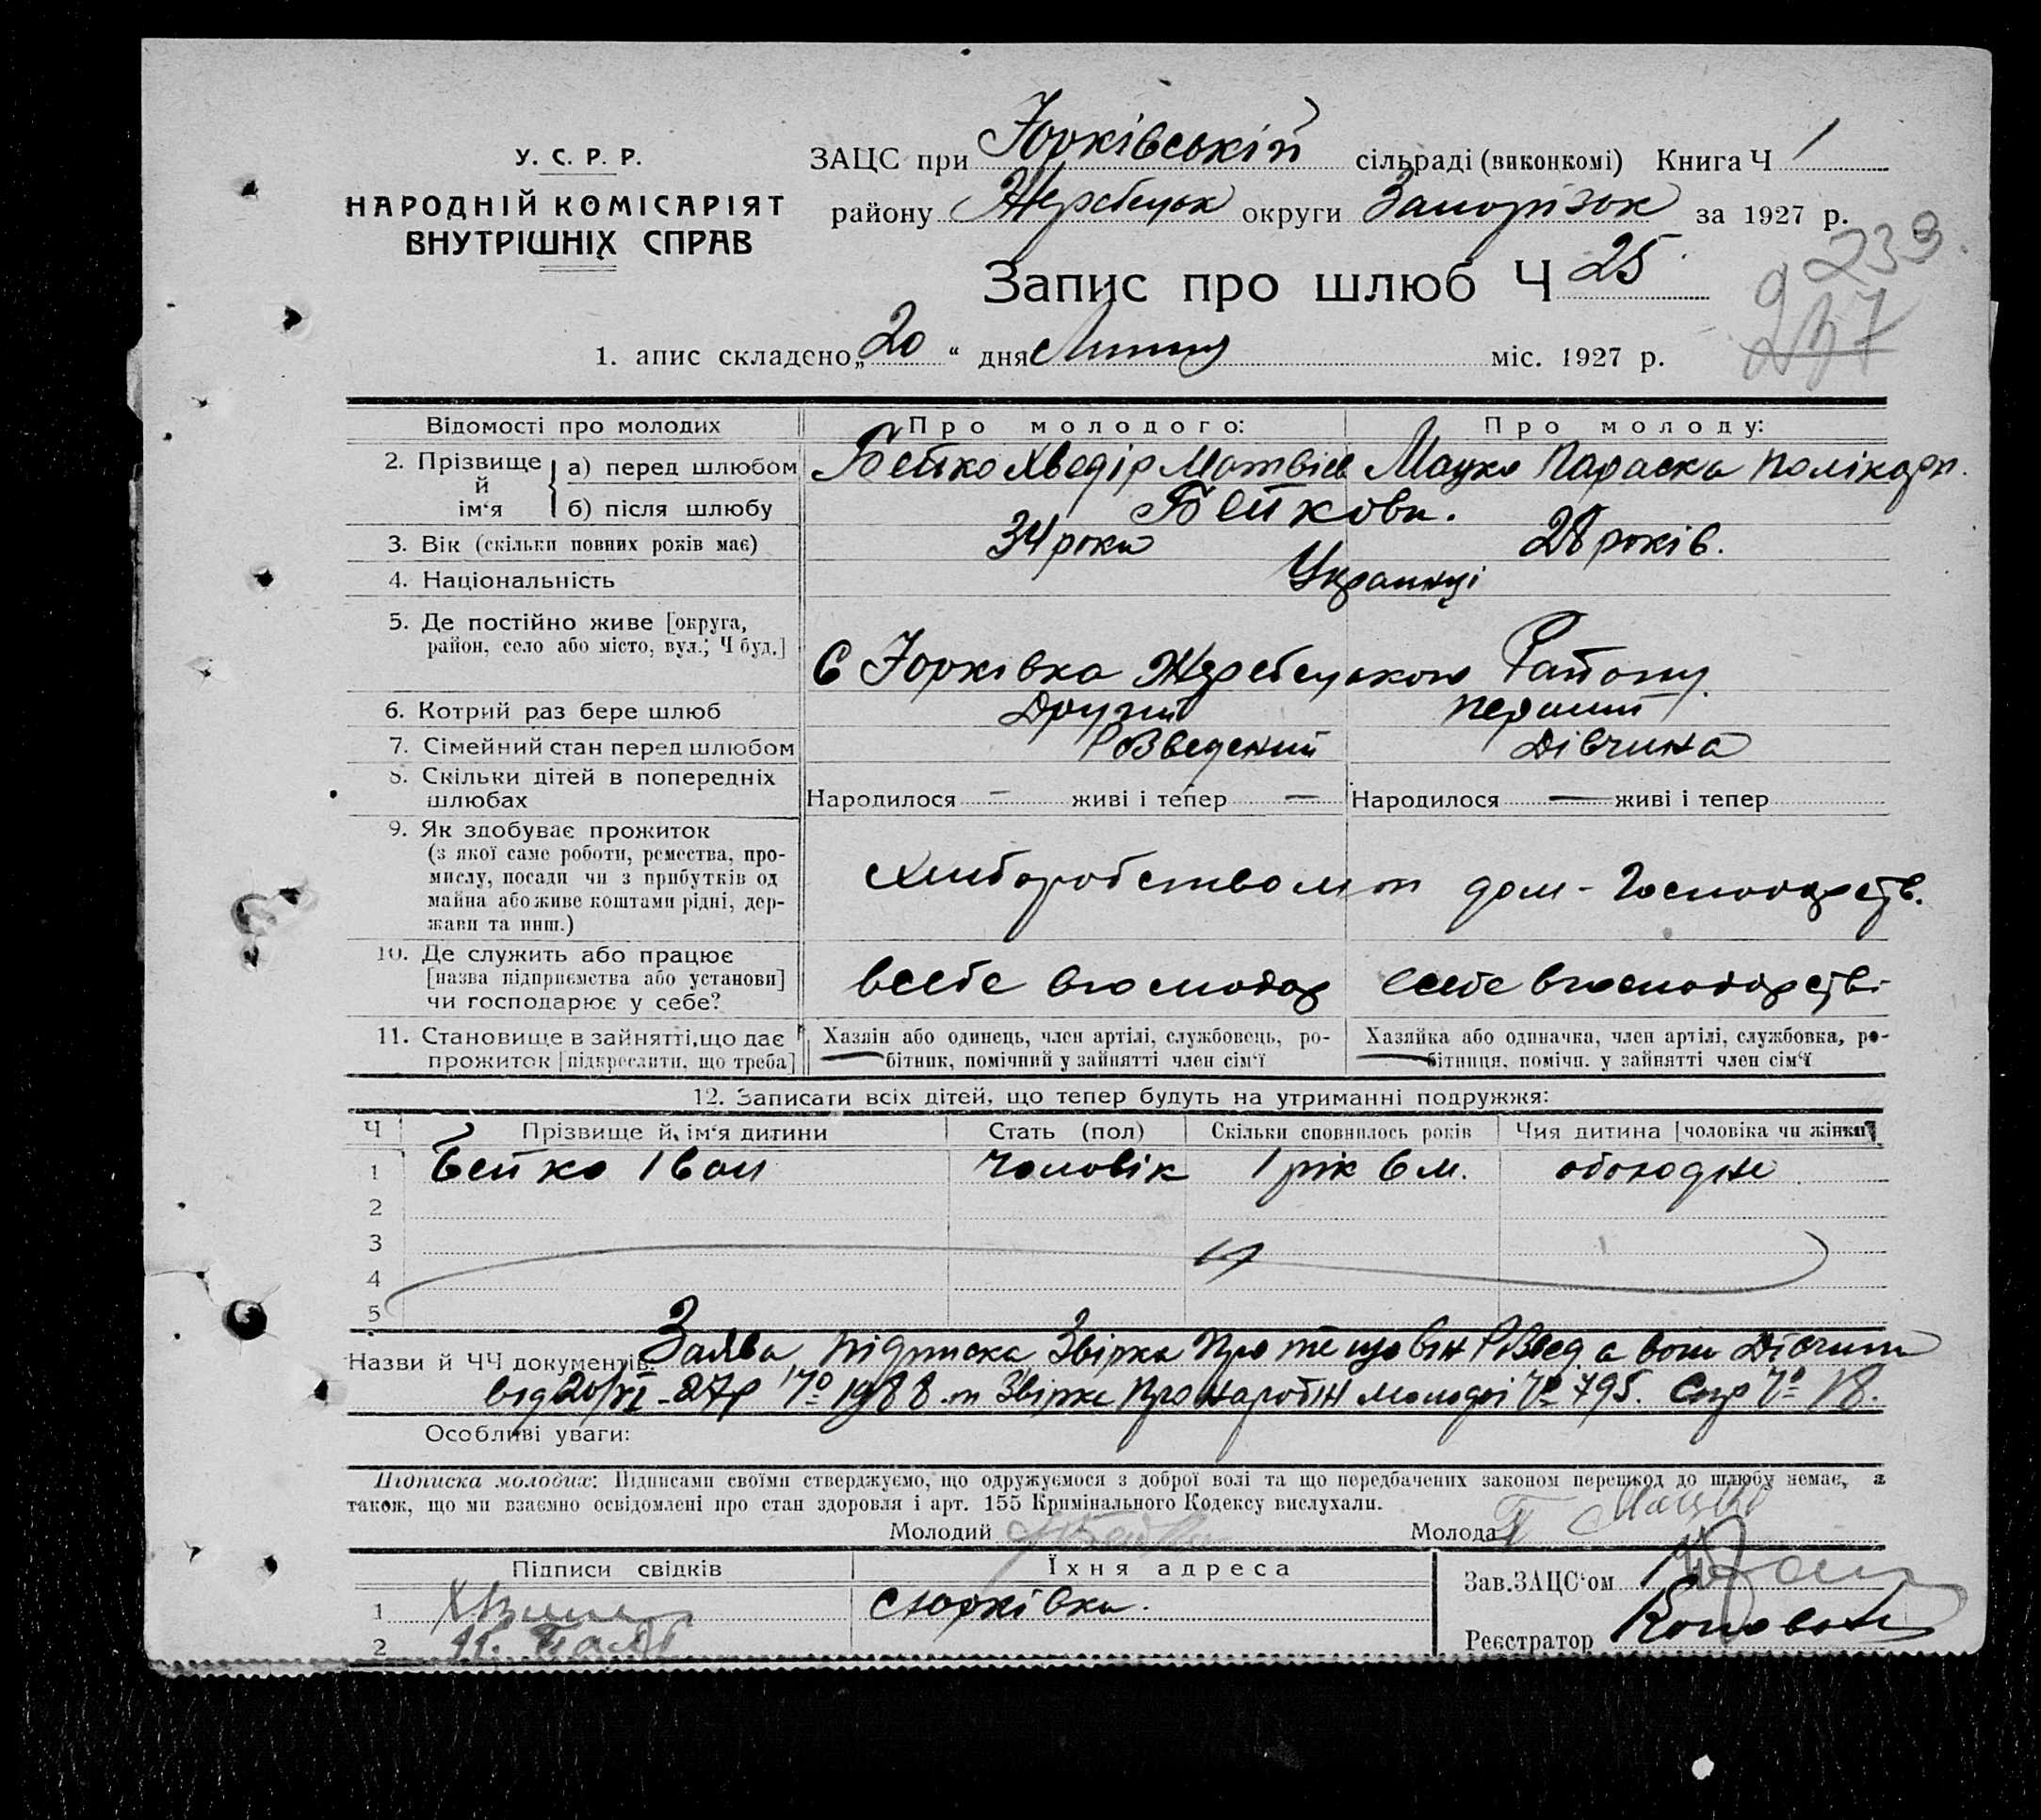 У. С. Р. Р.
НАРОДНІЙ КОМІСАРІЯТ
ВНУТРІШНІХ СПРАВ
ЗАЦС при Юрківській сільраді (виконкомі) Книга Ч 1
району Жеребецьк округи Запорізьк за 1927 р.
239
237
Запис про шлюб Ч 25
1. апис складено „20“ дня Липня міс. 1927 р.
Відомості про молодих Про молодого: Про молоду:
2. Прізвище й ім‘я а) перед шлюбом Бейко Хведір Матвієв Мацко Параска Полікарп.
б) після шлюбу Бейкови.
3. Вік (скільки повних років має) 34 роки 28 років.
4. Національність Украинці
5. Де постійно живе [округа,
район, село або місто, вул.; Ч буд.] С Юрківка Жеребецького Району
6. Котрий раз бере шлюб Другий Перший
7. Сімейний стан перед шлюбом Розведений Дівчина
8. Скільки дітей в попередніх
шлюбах Народилося — живі і тепер — Народилося — живі і тепер
9. Як здобуває прожиток
(з якої саме роботи, ремества, про-
мислу, посади чи з прибутків од
майна або живе коштами рідні, дер-
жави та инш.)
хліборобством т дом-господарств.
10. Де служить або працює
[назва підприємства або установи]
чи господарює у себе?
всебе вгосподар всебе вгосподарстві
11. Становище в зайнятті, що дає
прожиток [підкреслити, що треба]
Хазяін або одинець, член артілі, службовець, ро-
бітник, помічний у зайнятті член сім‘ї
Хазяйка або одиначка, член артілі, службовка, ро-
бітниця, помічн. у зайнятті член сім‘ї
12. Записати всіх дітей, що тепер будуть на утриманні подружжя:
Ч Прізвище й ім‘я дитини Стать (пол) Скільки сповнилось років Чия дитина [чоловіка чи жінки]
1 Бейко Іван Чоловік 1 рік 6 м. обоюдне
2
3
4
5
Назви й ЧЧ документів: Заява, підписка, Звірка Про те що він Розвед. а вона Дівчина
від 20/VI-27р № 1988 т Звірка про народін молодої № 795. Спр № 18.
Особливі уваги:
Підписка молодих: Підписами своїми стверджуємо, що одружуємося з доброї волі та що передбачених законом перешкод до шлюбу немає, а
також, що ми взаємно освідомлені про стан здоровля і арт. 155 Кримінального Кодексу вислухали.
Молодий Молода П Мацко
Підписи свідків Їхня адреса
1 с Юрківка.
2
Зав. ЗАЦС‘ом
Реєстратор